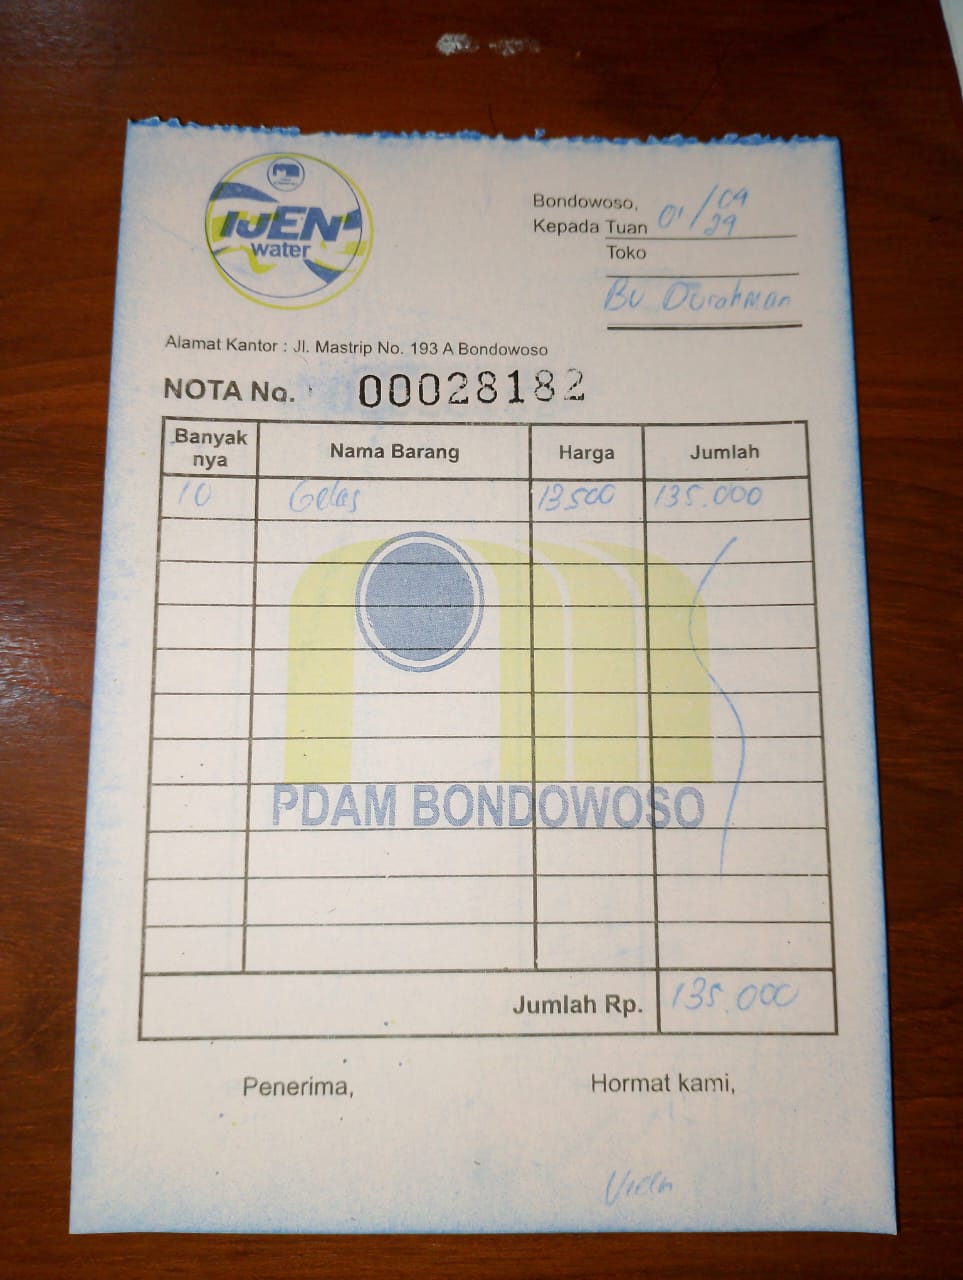 IJEN
water
Bondowoso, 01/09
Kepada Tuan
Toko
Bu Durahman
Alamat Kantor : Jl. Mastrip No. 193 A Bondowoso
NOTA No. 00028182
Banyak nya Nama Barang Harga Jumlah
10 Gelas 13.500 135.000
PDAM BONDOWOSO
Jumlah Rp. 135.000
Penerima, Hormat kami,